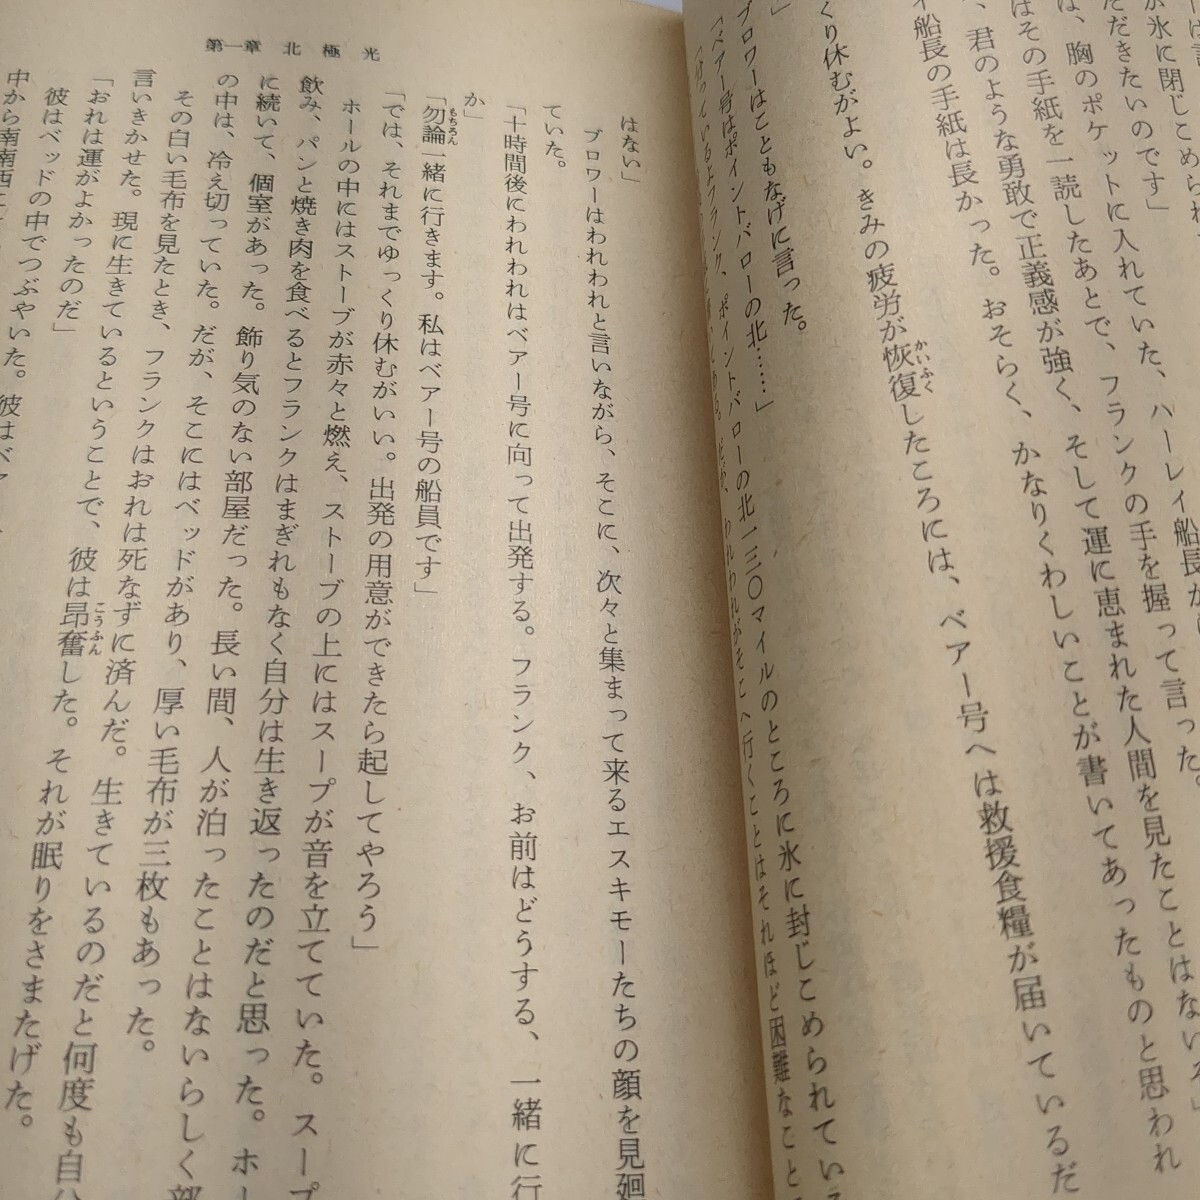 が氷に閉じこめられ、
ただきたいのです」
は、胸のポケットに入れていた、ハーレイ船長が
はその手紙を一読したあとで、フランクの手を握って言った。
、君のような勇敢で正義感が強く、そして運に恵まれた人間を見たことはない
イ船長の手紙は長かった。おそらく、かなりくわしいことが書いてあったものと思われ
くり休むがよい。きみの疲労が恢復したころには、ベアー号へは救援食糧が届いているだ
」
ブロワーはこともなげに言った。
「ベアー号はポイントバローの北……」
「分っているよフランク、ポイントバローの北一三〇マイルのところに氷に封じこめられている
われわれがそこへ行くことはそれほど困難なこと
はない」
ブロワーはわれわれと言いながら、そこに、次々と集まって来るエスキモーたちの顔を見廻
ていた。
「十時間後にわれわれはベアー号に向って出発する。フランク、お前はどうする、一緒に行
か」
「勿論一緒に行きます。私はベアー号の船員です」
もちろん
「では、それまでゆっくり休むがいい。出発の用意ができたら起してやろう」
ホールの中にはストーブが赤々と燃え、ストーブの上にはスープが音を立てていた。スープ
飲み、パンと焼き肉を食べるとフランクはまぎれもなく自分は生き返ったのだと思った。ホー
に続いて、個室があった。飾り気のない部屋だった。長い間、人が泊ったことはないらしく部
の中は、冷え切っていた。だが、そこにはベッドがあり、厚い毛布が三枚もあった。
その白い毛布を見たとき、フランクはおれは死なずに済んだ。生きているのだと何度も自分
言いきかせた。現に生きているということで、彼は昂奮した。それが眠りをさまたげた。
こうふん
「おれは運がよかったのだ」
彼はベッドの中でつぶやいた。彼はベア
中から南南西に
第一章 北極光
かいふく